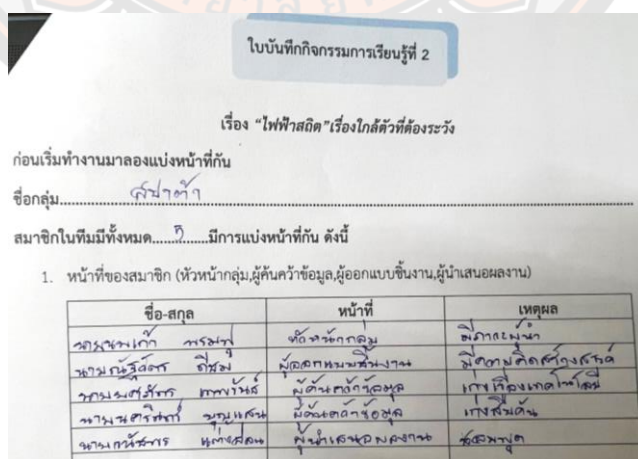 ใบบันทึกกิจกรรมการเรียนรู้ที่ 2
เรื่อง "ไฟฟ้าสถิต"เรื่องใกล้ตัวที่ต้องระวัง
ก่อนเริ่มทำงานมาลองแบ่งหน้าที่กัน
ชื่อกลุ่ม..........สปาต้า..........
สมาชิกในทีมมีทั้งหมด......5......มีการแบ่งหน้าที่กัน ดังนี้
1. หน้าที่ของสมาชิก (หัวหน้ากลุ่ม,ผู้ค้นคว้าข้อมูล,ผู้ออกแบบชิ้นงาน,ผู้นำเสนอผลงาน)
ชื่อ-สกุล หน้าที่ เหตุผล
หัวหน้ากลุ่ม มีภาวะผู้นำ
ผู้ออกแบบชิ้นงาน มีความคิดสร้างสรรค์
ผู้ค้นคว้าข้อมูล เก่งเรื่องเทคโนโลยี
บุญแสน ผู้ค้นคว้าข้อมูล เก่งสืบค้น
ผู้นำเสนอผลงาน ชอบพูด